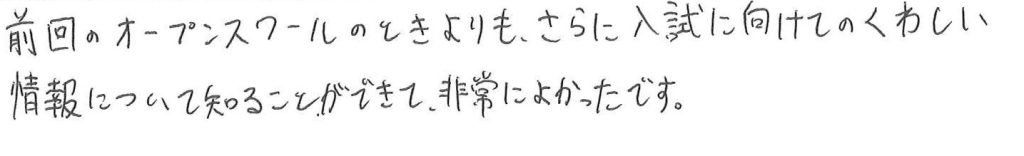 前回のオープンスクールのときよりも、さらに入試に向けてのくわしい
情報について知ることができて、非常によかったです。